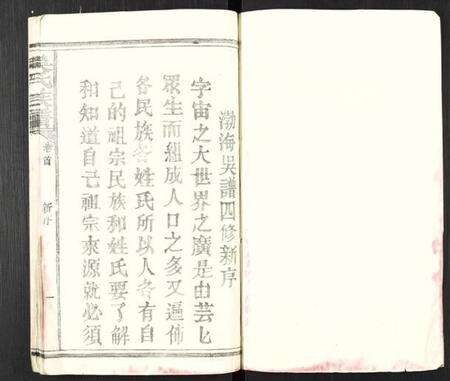 渤海吳譜四修新序
宇宙之大世界之廣是由芸匕
眾生而組成人口之多又遍佈
各民族各姓氏所以人各有自
己的祖宗民族和姓氏要了解
和知道自己祖宗來源就必須
氏族譜
卷首
新序
一